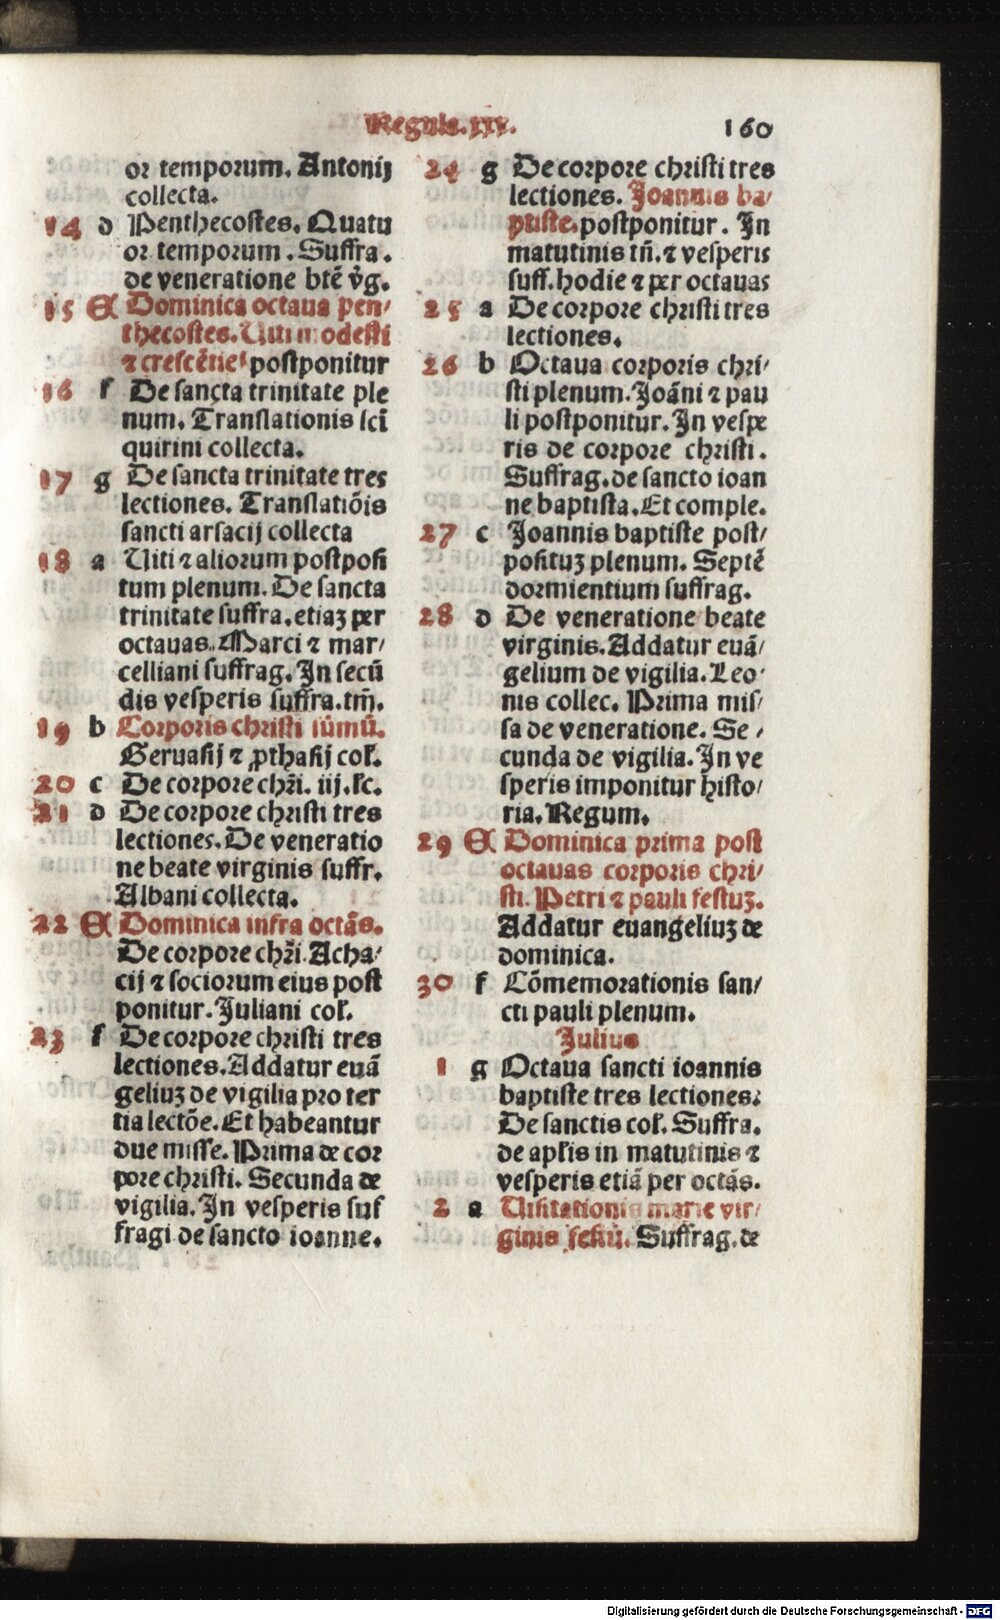 Regula. xxx.
160
or temporum. Antonij
collecta.
14 d Penthecostes. Quatu
or temporum. Suffra.
de veneratione btē v̄g.
15 A Dominica octaua pen/
thecostes. Uiti modesti
⁊ crescētie postponitur
16 f De sancta trinitate ple
num. Translationis sci̅
quirini collecta.
17 g De sancta trinitate tres
lectiones. Translatiōis
sancti arsacij collecta
18 a Uiti ⁊ aliorum postposi
tum plenum. De sancta
trinitate suffra. etiaꝫ per
octauas. Marci ⁊ mar/
celliani suffrag. In secū
dis vesperis suffra. tm̄.
19 b Corporis christi sūmū.
Geruasij ⁊ ꝓthasij col̄.
20 c De corpore chr̄i. iij. lc̄.
21 d De corpore christi tres
lectiones. De veneratio
ne beate virginis suffr.
Albani collecta.
22 A Dominica infra octās.
De corpore chr̄i. Acha/
cij ⁊ sociorum eius post
ponitur. Juliani col̄.
23 f De corpore christi tres
lectiones. Addatur euā
geliuꝫ de vigilia pro ter
tia lectōe. Et habeantur
due misse. Prima de cor
pore christi. Secunda de
vigilia. In vesperis suf
fragi de sancto ioanne.
24 g De corpore christi tres
lectiones. Joannis ba/
ptiste. postponitur. In
matutinis tn̄. ⁊ vesperis
suff. hodie ⁊ per octauas
25 a De corpore christi tres
lectiones.
26 b Octaua corporis chri/
sti plenum. Joāni ⁊ pau
li postponitur. In vespe
ris de corpore christi.
Suffrag. de sancto ioan
ne baptista. Et comple.
27 c Joannis baptiste post/
posituꝫ plenum. Septē
dormientium suffrag.
28 d De veneratione beate
virginis. Addatur euā/
gelium de vigilia. Leo
nis collec. Prima mis/
sa de veneratione. Se/
cunda de vigilia. In ve
speris imponitur histo/
ria. Regum.
29 A Dominica prima post
octauas corporis chri/
sti. Petri ⁊ pauli festuꝫ.
Addatur euangeliuꝫ de
dominica.
30 f Cōmemorationis san/
cti pauli plenum.
Julius
1 g Octaua sancti ioannis
baptiste tres lectiones.
De sanctis col̄. Suffra.
de apl̄is in matutinis ⁊
vesperis etiā per octās.
2 a Uisitationis marie vir/
ginis Suffrag. de
Digitalisierung gefördert durch die Deutsche Forschungsgemeinschaft - DFG